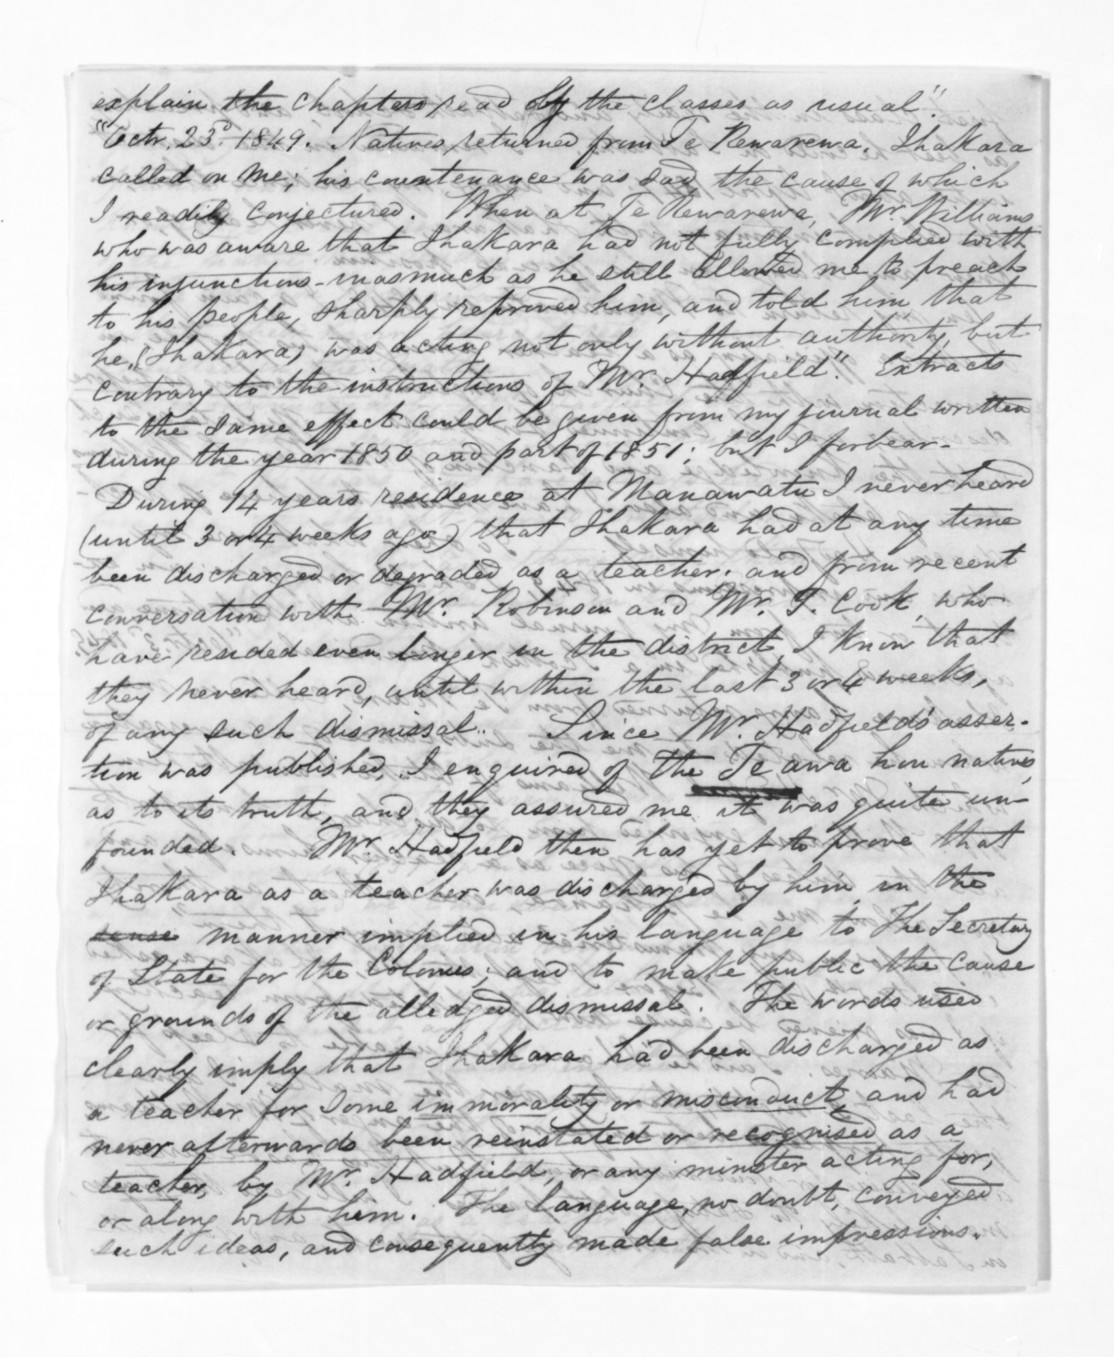 explain the chapters, read by the classes as usual."
"Octr. 23d. 1849. Natives returned from Te Rewarewa. Ihakara
called on me; his countenance was sad, the cause of which
I readily conjectured. When at Te Rewarewa, Mr. Williams
who was aware that Ihakara had not fully complied with
his injunctions - inasmuch as he still allowed me to preach
to his people, sharply reproved him, and told him that
he, (Ihakara) was acting not only without authority, but
contrary to the instructions of Mr. Hadfield." Extracts
to the same effect could be given from my journal written
during the year 1850 and part of 1851; but I forbear.
During 14 years residence at Manawatu I never heard
(until 3 or 4 weeks ago) that Ihakara had at any time
been discharged or degraded as a teacher. and from recent
conversation with Mr. Robinson and Mr. T. Cook, who
have resided even longer in the district, I know that
they never heard, until within the last 3 or 4 weeks,
of any such dismissal. Since Mr. Hadfield's asser-
tion was published, I enquired of the Te awa hou natives,
as to its truth, and they assured me it was quite un-
founded. Mr. Hadfield then has yet to prove that
Ihakara as a teacher was discharged by him in the
sense manner implied in his language to The Secretary
of State for the Colonies; and to make public the cause
or grounds of the alledged dismissal. The words used
clearly imply that Ihakara had been discharged as
a teacher for some immorality or misconduct, and had
never afterwards been reinstated or recognised as a
teacher, by Mr. Hadfield, or any minister acting for,
or along with him. The language, no doubt, conveyed
such ideas, and consequently made false impressions.